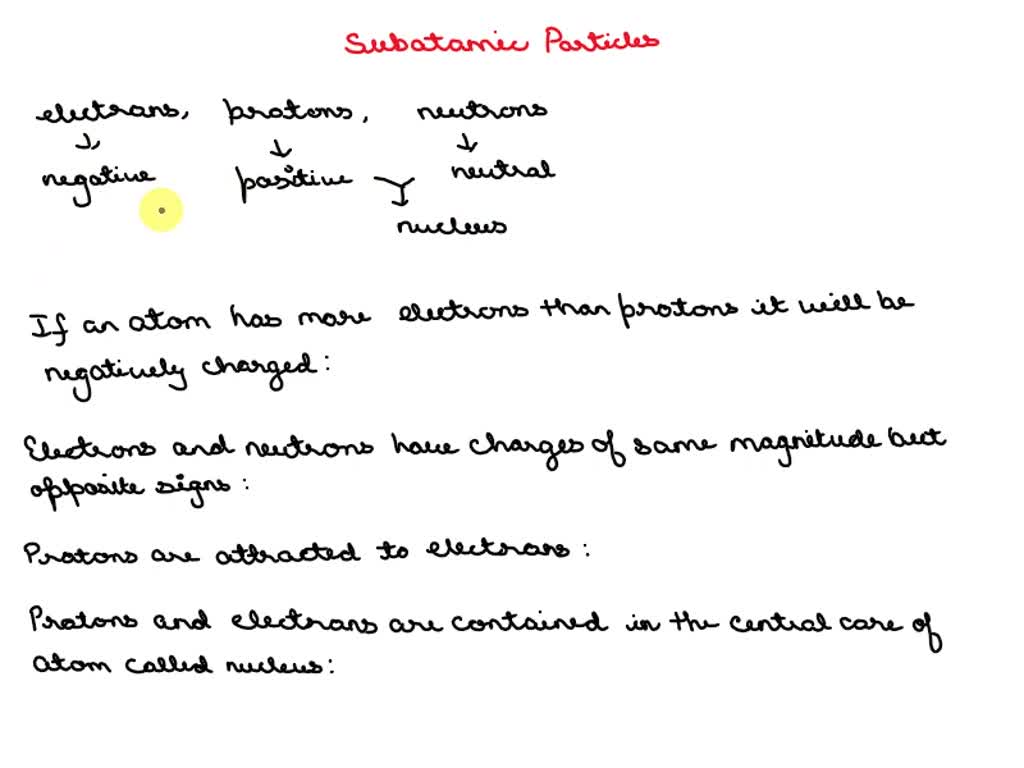 Subatamic Particles
electrans, protons, neutrons
negative positive neutral
nucleus
If an atom has more electrons than protons it will be
negatively charged:
Electrons and neutrons have charges of same magnitude but
opposite signs:
Protons are attracted to electrans:
Protons and electrans are contained in the central care of
atom called nucleus: